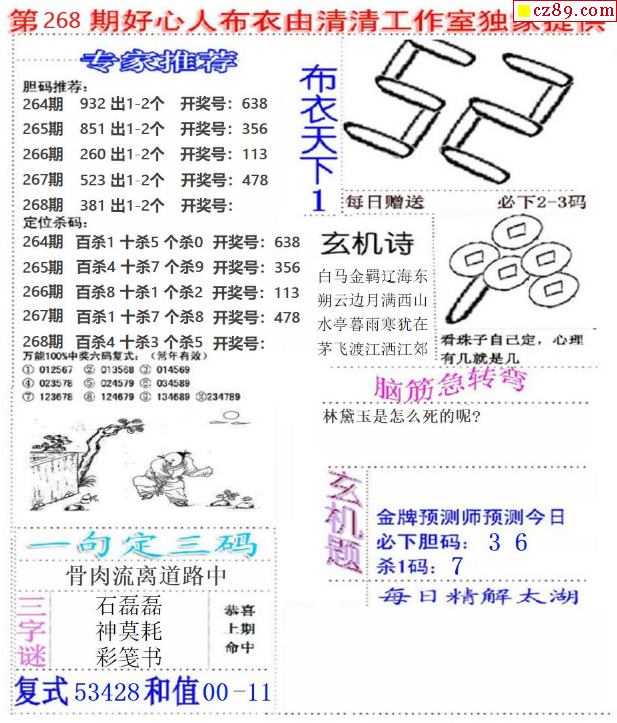 第268期好心人布衣由清清工作室独家提供
cz89.com
专家推荐
胆码推荐:
264期 932 出1-2个 开奖号: 638
265期 851 出1-2个 开奖号: 356
266期 260 出1-2个 开奖号: 113
267期 523 出1-2个 开奖号: 478
268期 381 出1-2个 开奖号:
定位杀码:
264期 百杀1 十杀5 个杀0 开奖号: 638
265期 百杀4 十杀7 个杀9 开奖号: 356
266期 百杀8 十杀1 个杀2 开奖号: 113
267期 百杀1 十杀7 个杀8 开奖号: 478
268期 百杀4 十杀3 个杀5 开奖号:
万能100%中奖六码复式: (常年有效)
① 012567 ② 013568 ③ 014569
④ 023578 ⑤ 024579 ⑥ 034589
⑦ 123678 ⑧ 124679 ⑨ 134689 ⑩234789
布衣天下1
52
每日赠送 必下2-3码
玄机诗
白马金羁辽海东
朔云边月满西山
水亭暮雨寒犹在
茅飞渡江洒江郊
看珠子自己定,心理
有几就是几
脑筋急转弯
林黛玉是怎么死的呢?
一句定三码
骨肉流离道路中
三字谜
石磊磊
神莫耗
彩笺书
恭喜
上期
命中
玄机题
金牌预测师预测今日
必下胆码: 3 6
杀1码: 7
每日精解太湖
复式53428和值00-11